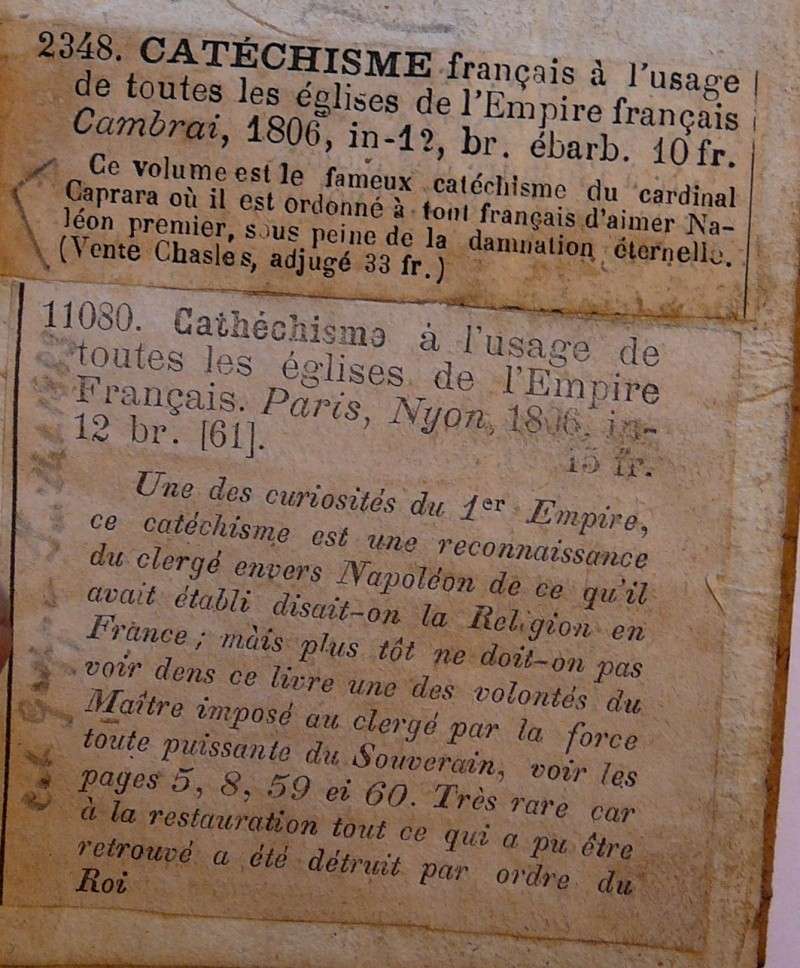 2348. CATÉCHISME français à l'usage
de toutes les églises de l'Empire français
Cambrai, 1806, in-12, br. ébarb. 10 fr.
Ce volume est le fameux catéchisme du cardinal
Caprara où il est ordonné à tout français d'aimer Na-
léon premier, sous peine de la damnation éternelle.
(Vente Chasles, adjugé 33 fr.)
11080. Cathéchisme à l'usage de
toutes les églises de l'Empire
Français. Paris, Nyon, 1806, in-
12 br. [61]. 15 fr.
Une des curiosités du 1er Empire,
ce catéchisme est une reconnaissance
du clergé envers Napoléon de ce qu'il
avait établi disait-on la Religion en
France ; mais plus tôt ne doit-on pas
voir dens ce livre une des volontés du
Maître imposé au clergé par la force
toute puissante du Souverain, voir les
pages 5, 8, 59 et 60. Très rare car
à la restauration tout ce qui a pu être
retrouvé a été détruit par ordre du
Roi